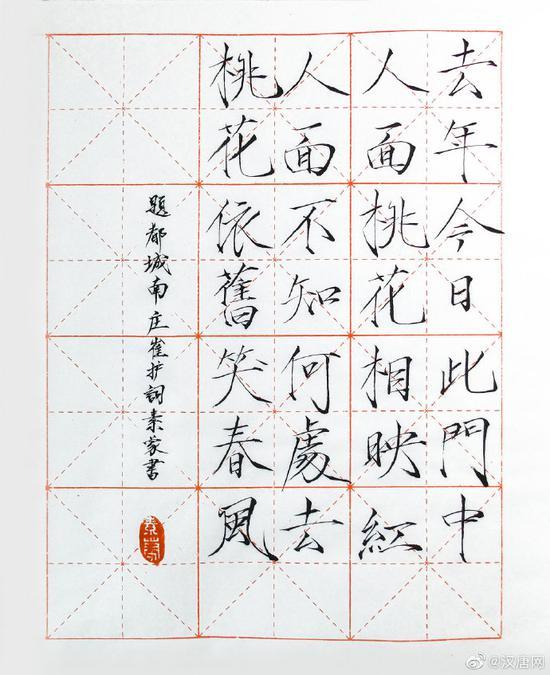 去年今日此門中
人面桃花相映紅
人面不知何處去
桃花依舊笑春風
題都城南庄崔护詞素蒙書
素蒙
@汉唐网